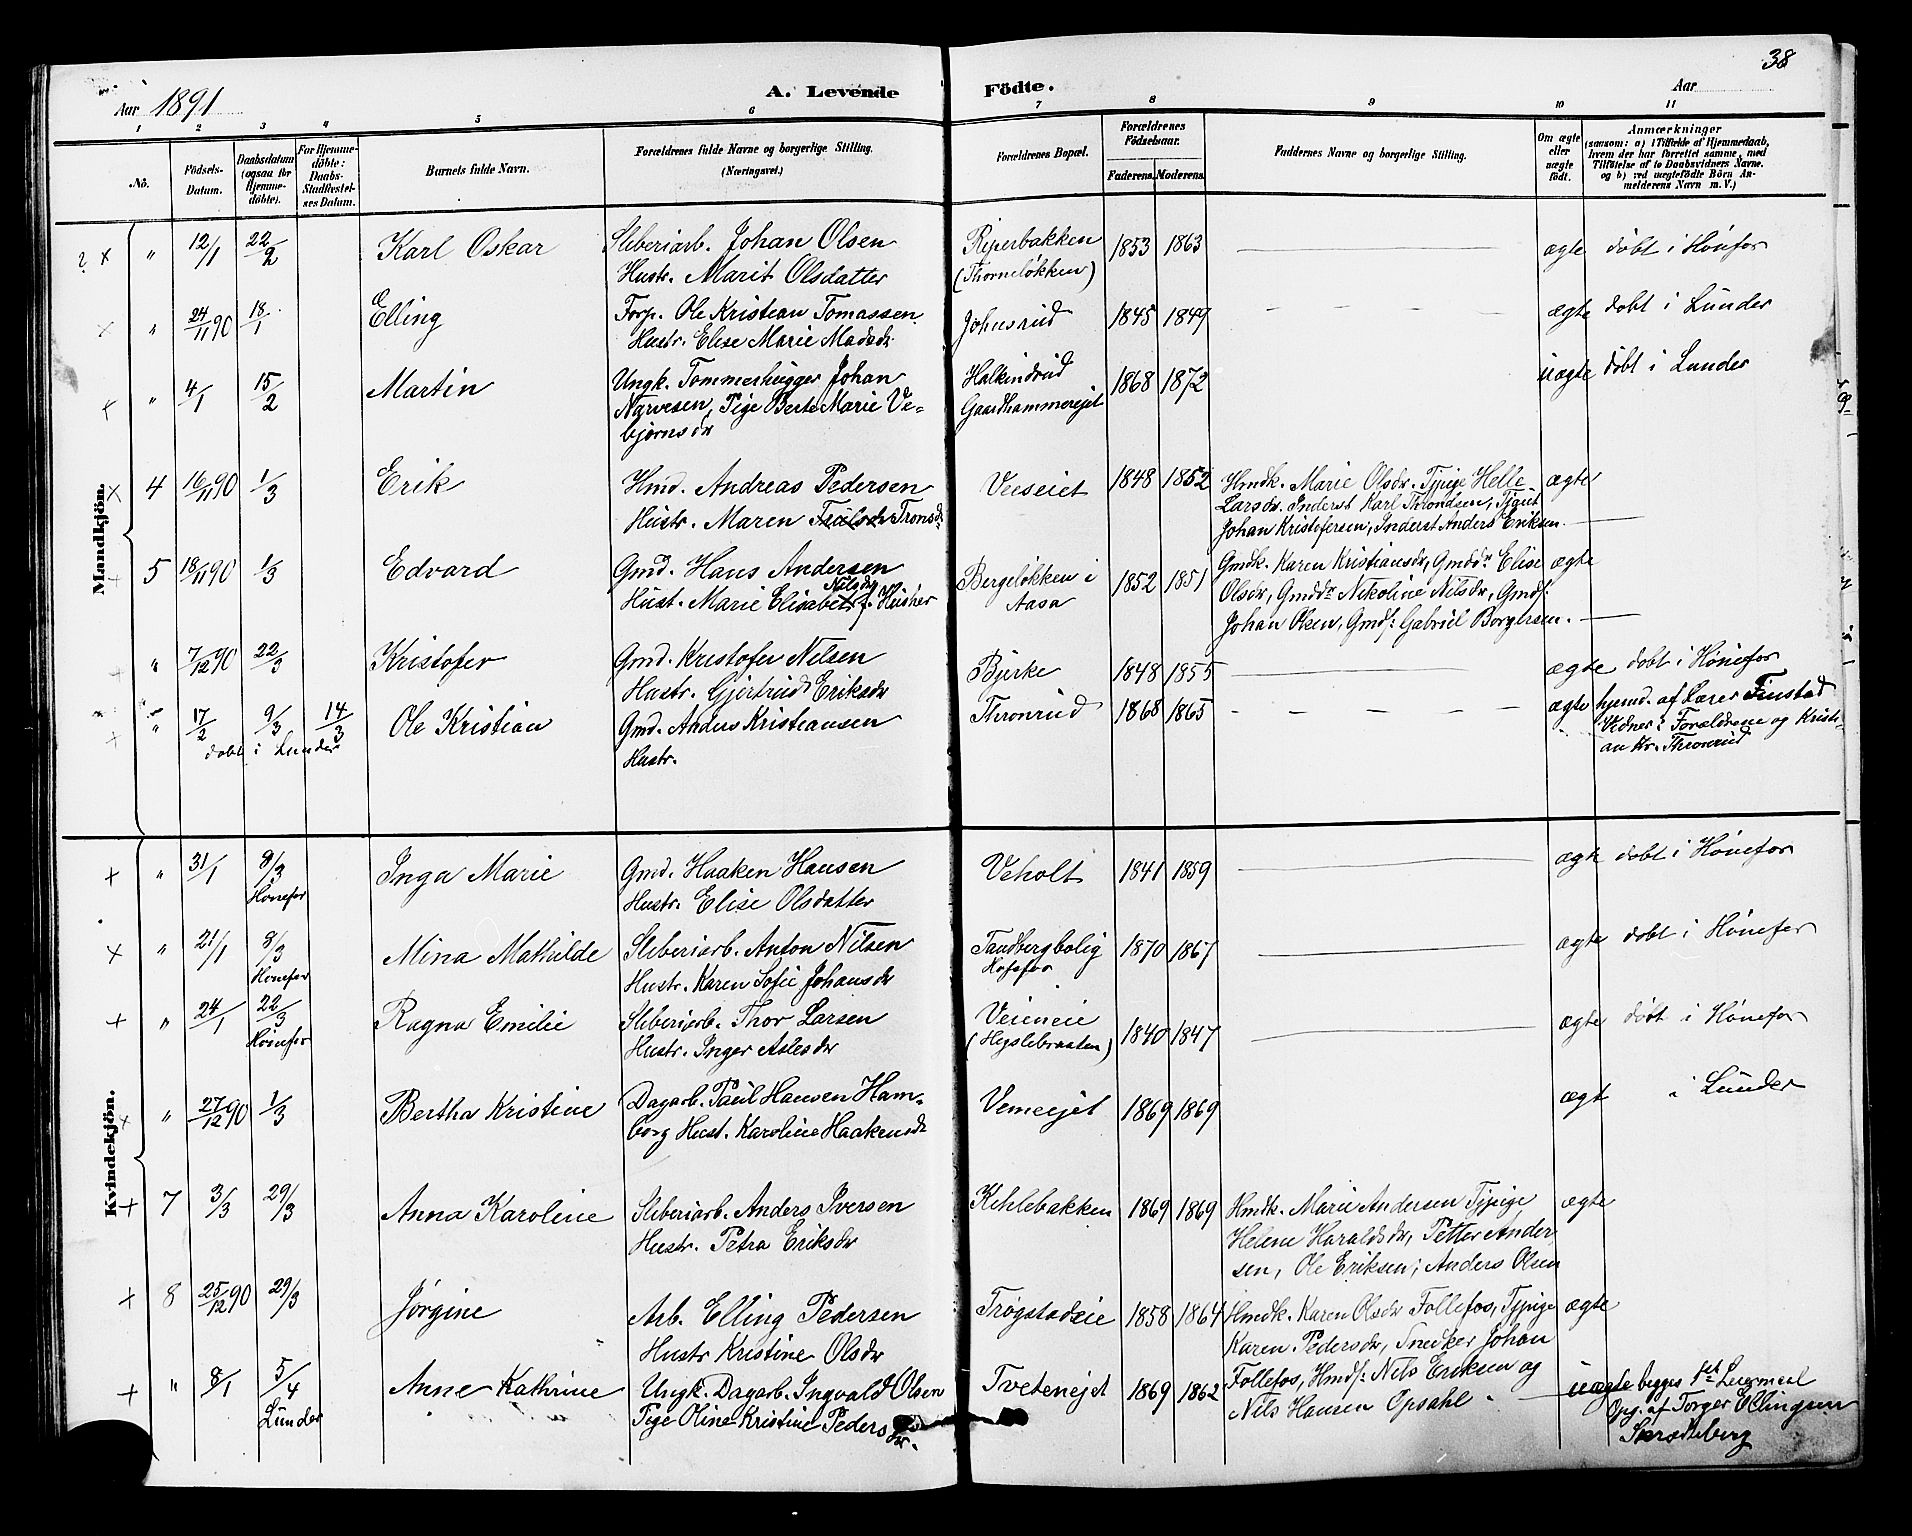 38
Aar 1891
A. Levende Födte.
Aar
1 2 3 4 5 6 7 8 9 10 11
No.
Födsels-Datum.
Daabsdatum (ogsaa for Hjemme-döbte).
For Hjemme-döbte: Daabs-Stadfæstelses Datum.
Barnets fulde Navn.
Forældrenes fulde Navne og borgerlige Stilling. (Næringsvei.)
Forældrenes Bopæl.
Forældrenes Födselsaar.
Faderens. Moderens.
Faddernes Navne og borgerlige Stilling.
Om ægte eller uægte födt.
Anmærkninger (saasom: a) i Tilfælde af Hjemmedaab, hvem der har forrettet samme, med Tilföielse af to Daabsvidners Navne, og b) ved uægtefödte Börn Anmelderens Navn m. V.)
Mandkjön.
? x " 12/1 22/2 Karl Oskar Sliberiarb. Johan Olsen Riperbakken 1853 1863 ægte døbt i Hønefos
Hustr. Marit Olsdatter (Thorneløkken)
x " 24/11 90 18/1 Elling Forp. Ole Kristian Tomassen Johnsrud 1845 1849 ægte døbt i Lunder
Hustr. Elise Marie Madsdr
+ " 4/1 15/2 Martin Ungk. Tømmerhugger Johan Halkinrud 1868 1872 uægte døbt i Lunder
Narvesen, Pige Berte Marie Ve- Gaardhammerejet
bjørnsdr
x 4 16/11 90 1/3 Erik Hmd. Andreas Pedersen Veeseiet 1848 1852 Hmdk. Marie Olsdr. Tjpige Helle ægte
Hustr. Maren Truls dr Tronsdr Larsdr. Inderst Karl Throndsen, Tjgut
Johan Kristofersen, Inderst Anders Eriksen.
+ 5 18/11 90 1/3 Edvard Gmd. Hans Andersen Bergeløkken i Aasa 1852 1851 Gmdk. Karen Kristiansdr, Gmddr Elise ægte
Hust. Marie Elisabet Nilsdr f. Husher Olsdr, Gmddr Nikoline Nilsdr, Gmdf:
Johan Olsen, Gmdf: Gabriel Borgersen.
+ " 7/12 90 22/3 Kristofer Gmd. Kristofer Nilsen Bjerke 1848 1855 ægte døbt i Hønefos
Hustr. Gjertrud Eriksdr
+ " 17/2 9/3 14/3 Ole Kristian Gmd. Anders Kristiansen Thronrud 1868 1865 ægte hjemd. af Lærer Finstad
døbt i Lunder Hustr. Vidner: Forældrene og Kristi-
an Kr. Thronrud
Kvindekjön.
+ " 31/1 8/3 Hønefos Inga Marie Gmd. Haaken Hansen Veholt 1841 1859 ægte døbt i Hønefos
Hustr. Elise Olsdatter
x " 21/1 8/3 Hønefos Mina Mathilde Sliberiarb. Anton Nilsen Tandbergbolig 1870 1867 ægte døbt i Hønefos
Hustr. Karen Sofie Johansdr Hofsfos
+ " 24/1 22/3 Hønefos Ragna Emilie Sliberiarb. Thor Larsen Veieneie 1840 1847 ægte døbt i Hønefos
Hustr. Inger Aslesdr
x " 27/12 90 1/3 Bertha Kristine Dagarb. Paul Hansen Ham- Vemeejet 1869 1869 ægt i Lunder
borg Hust. Karoline Haakensdr
+ 7 3/3 29/3 Anna Karoline Sliberiarb. Anders Iversen Kihlebakken 1869 1869 Hmdk. Marie Andersen Tjpige ægte
Hustr. Petra Eriksdr Helene Haraldsdr, Petter Ander-
sen, Ole Eriksen; Anders Olsen
+ 8 25/12 90 29/3 Jørgine Arb. Elling Pedersen Trøgstadeie 1858 1864 Hmdk. Karen Olsdr Follefos, Tjpige ægte
Hustr Kristine Olsdr Karen Pedersdr, Snedker Johan
Follefos, Hmdf: Nils Eriksen og
Nils Hansen Opsahl
+ " 8/1 5/4 Lunder Anne Kathrine Ungk. Dagarb. Ingvald Olsen Tvetenejet 1869 1862 uægte begges 1ste Leiermaal
Pige Oline Kristine Pedersdr. Opg. af Torger Ellingsen